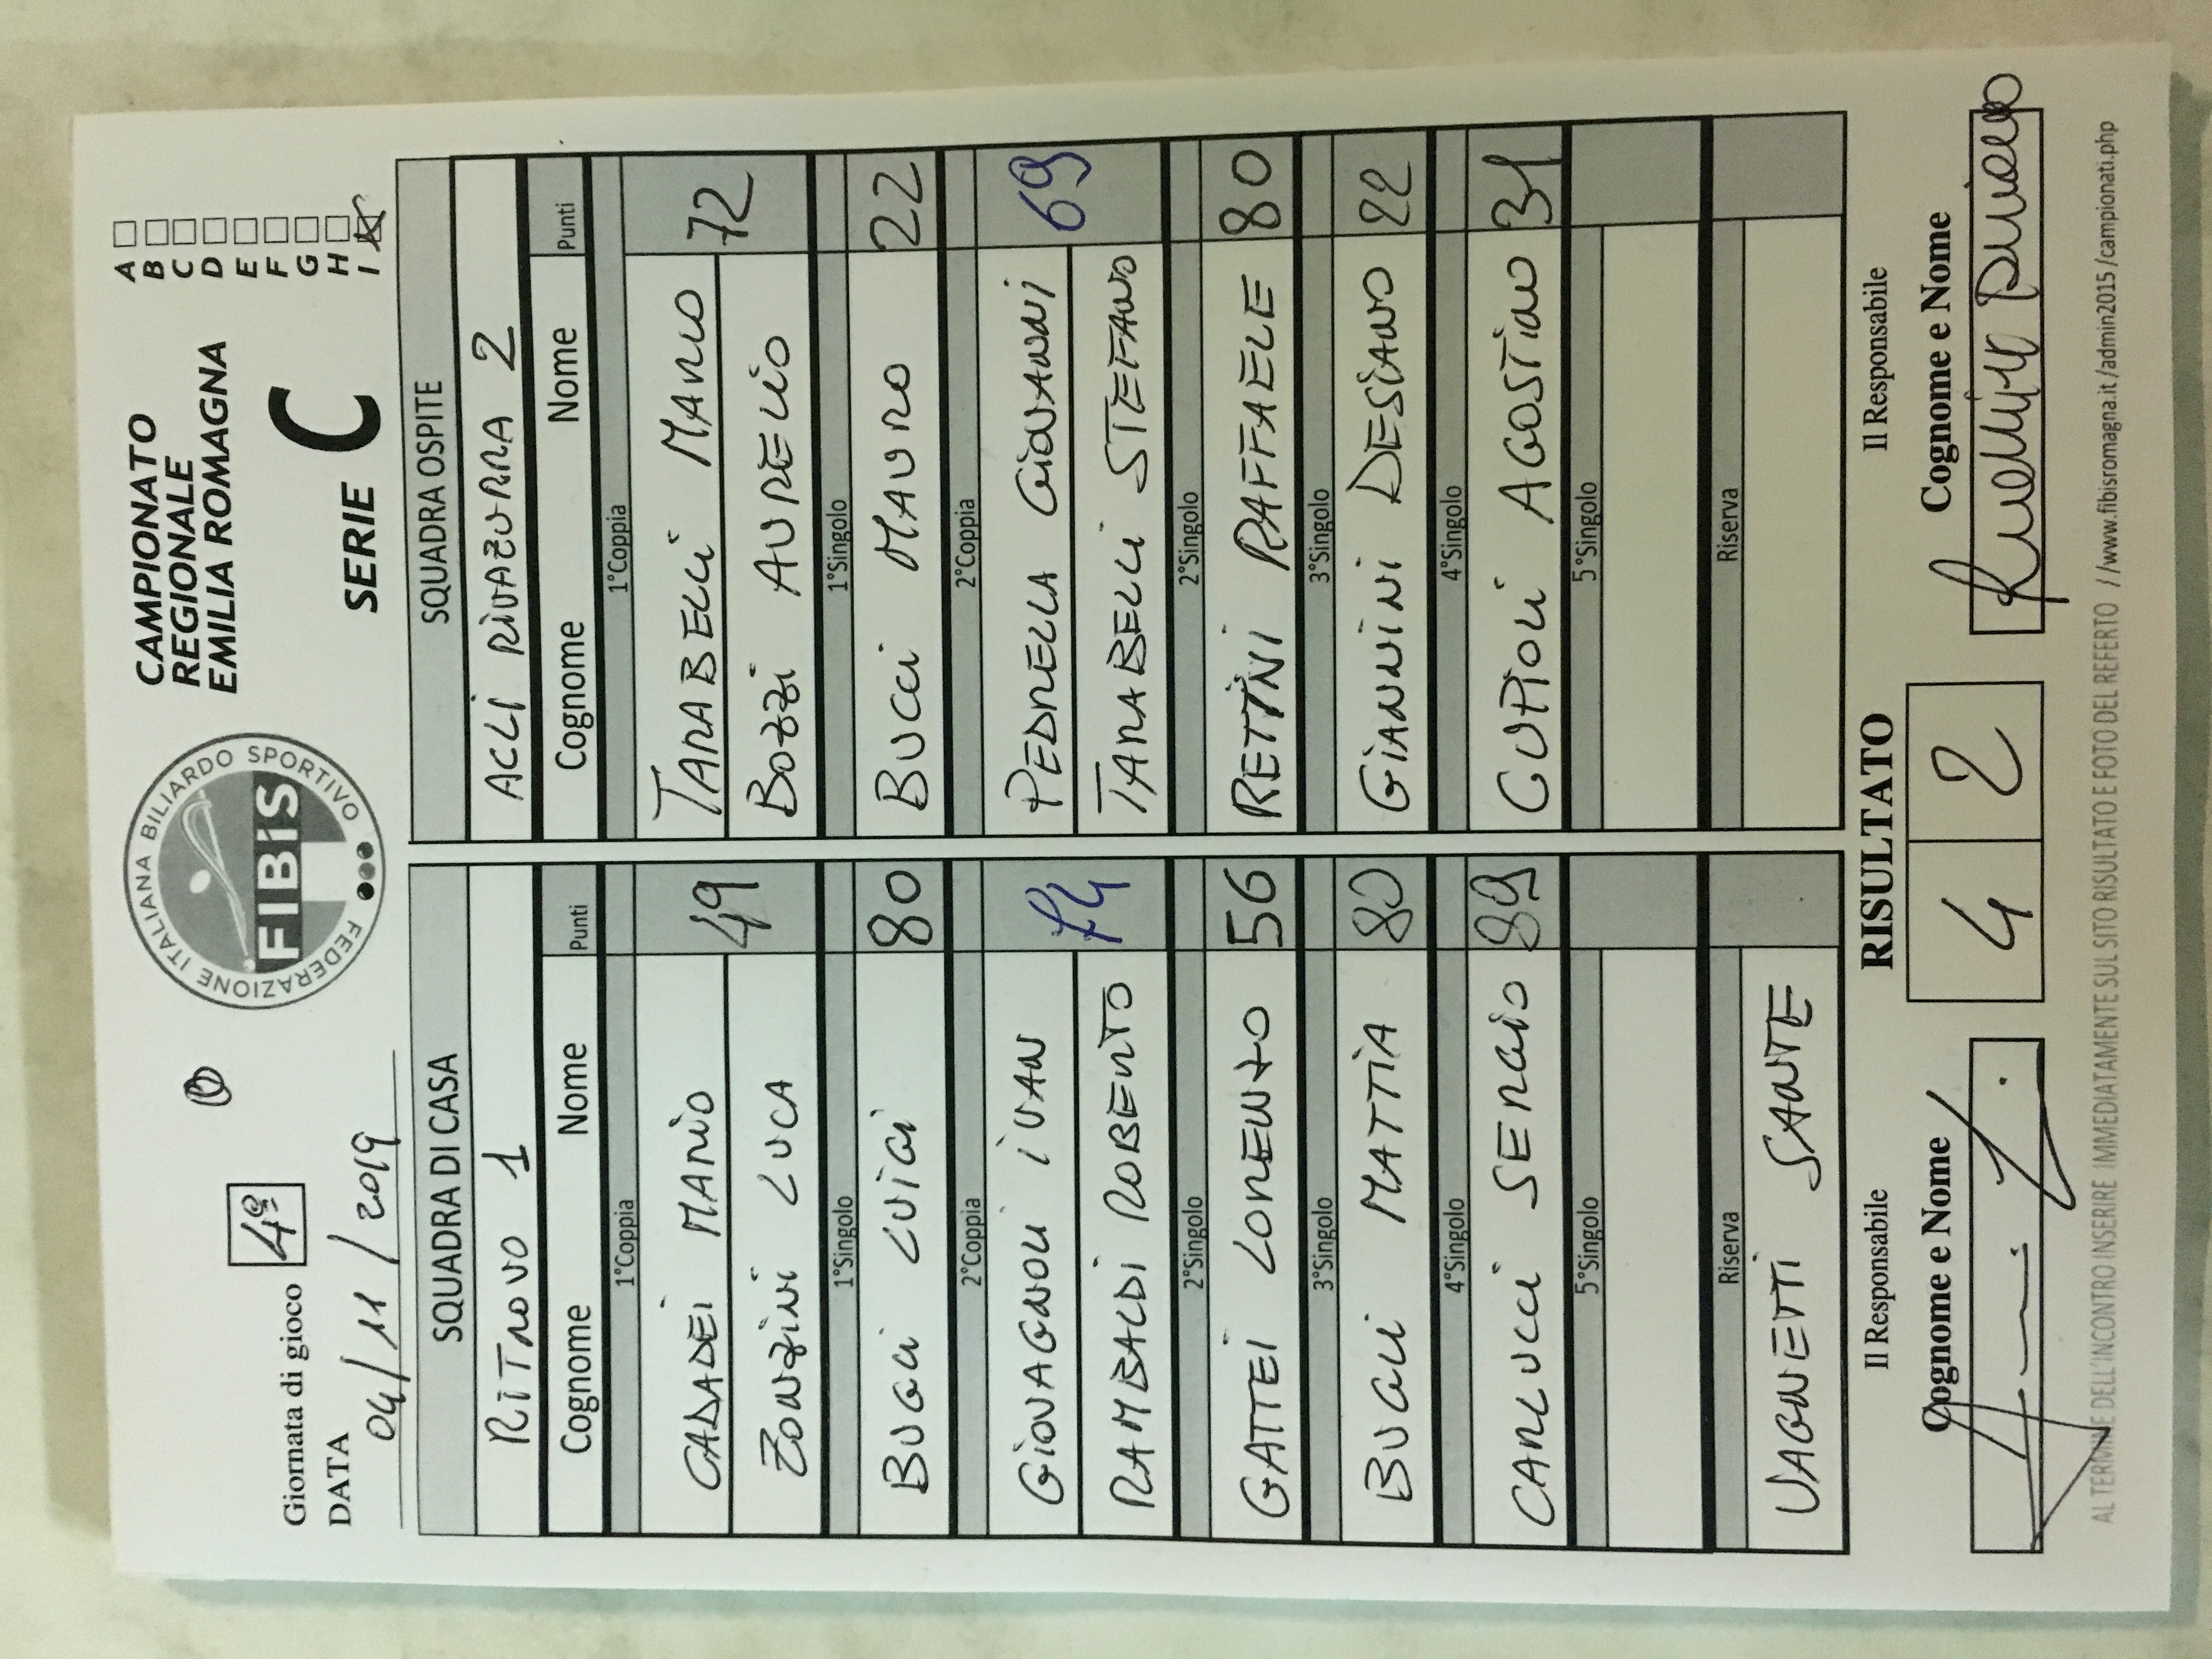 Giornata di gioco 4ª
DATA 04/11/2019
FEDERAZIONE ITALIANA BILIARDO SPORTIVO
FIBiS
CAMPIONATO
REGIONALE
EMILIA ROMAGNA
SERIE C
A
B
C
D
E
F
G
H
I
SQUADRA DI CASA
RITROVO 1
Cognome Nome Punti
1°Coppia
CASADEI MARIO 49
ZONZINI LUCA
1°Singolo
BUGLI LUIGI 80
2°Coppia
GIOVAGNOLI IVAN 74
RAMBALDI ROBERTO
2°Singolo
GATTEI LORENZO 56
3°Singolo
BUGLI MATTIA 80
4°Singolo
CARLUCCI SERGIO 89
5°Singolo
Riserva
VAGNETTI SANTE
SQUADRA OSPITE
ACLI RIVAZURRA 2
Cognome Nome Punti
1°Coppia
TARABELLI MARCO 72
BOZZI AURELIO
1°Singolo
BUCCI MAURO 22
2°Coppia
PEDRELLA GIOVANNI 69
TARABELLI STEFANO
2°Singolo
RETTINI RAFFAELE 80
3°Singolo
GIANNINI DESIANO 22
4°Singolo
CUPIOLI AGOSTINO 31
5°Singolo
Riserva
Il Responsabile
Cognome e Nome
RISULTATO
4 2
Il Responsabile
Cognome e Nome
AL TERMINE DELL'INCONTRO INSERIRE IMMEDIATAMENTE SUL SITO RISULTATO E FOTO DEL REFERTO //www.fibisromagna.it/admin2015/campionati.php